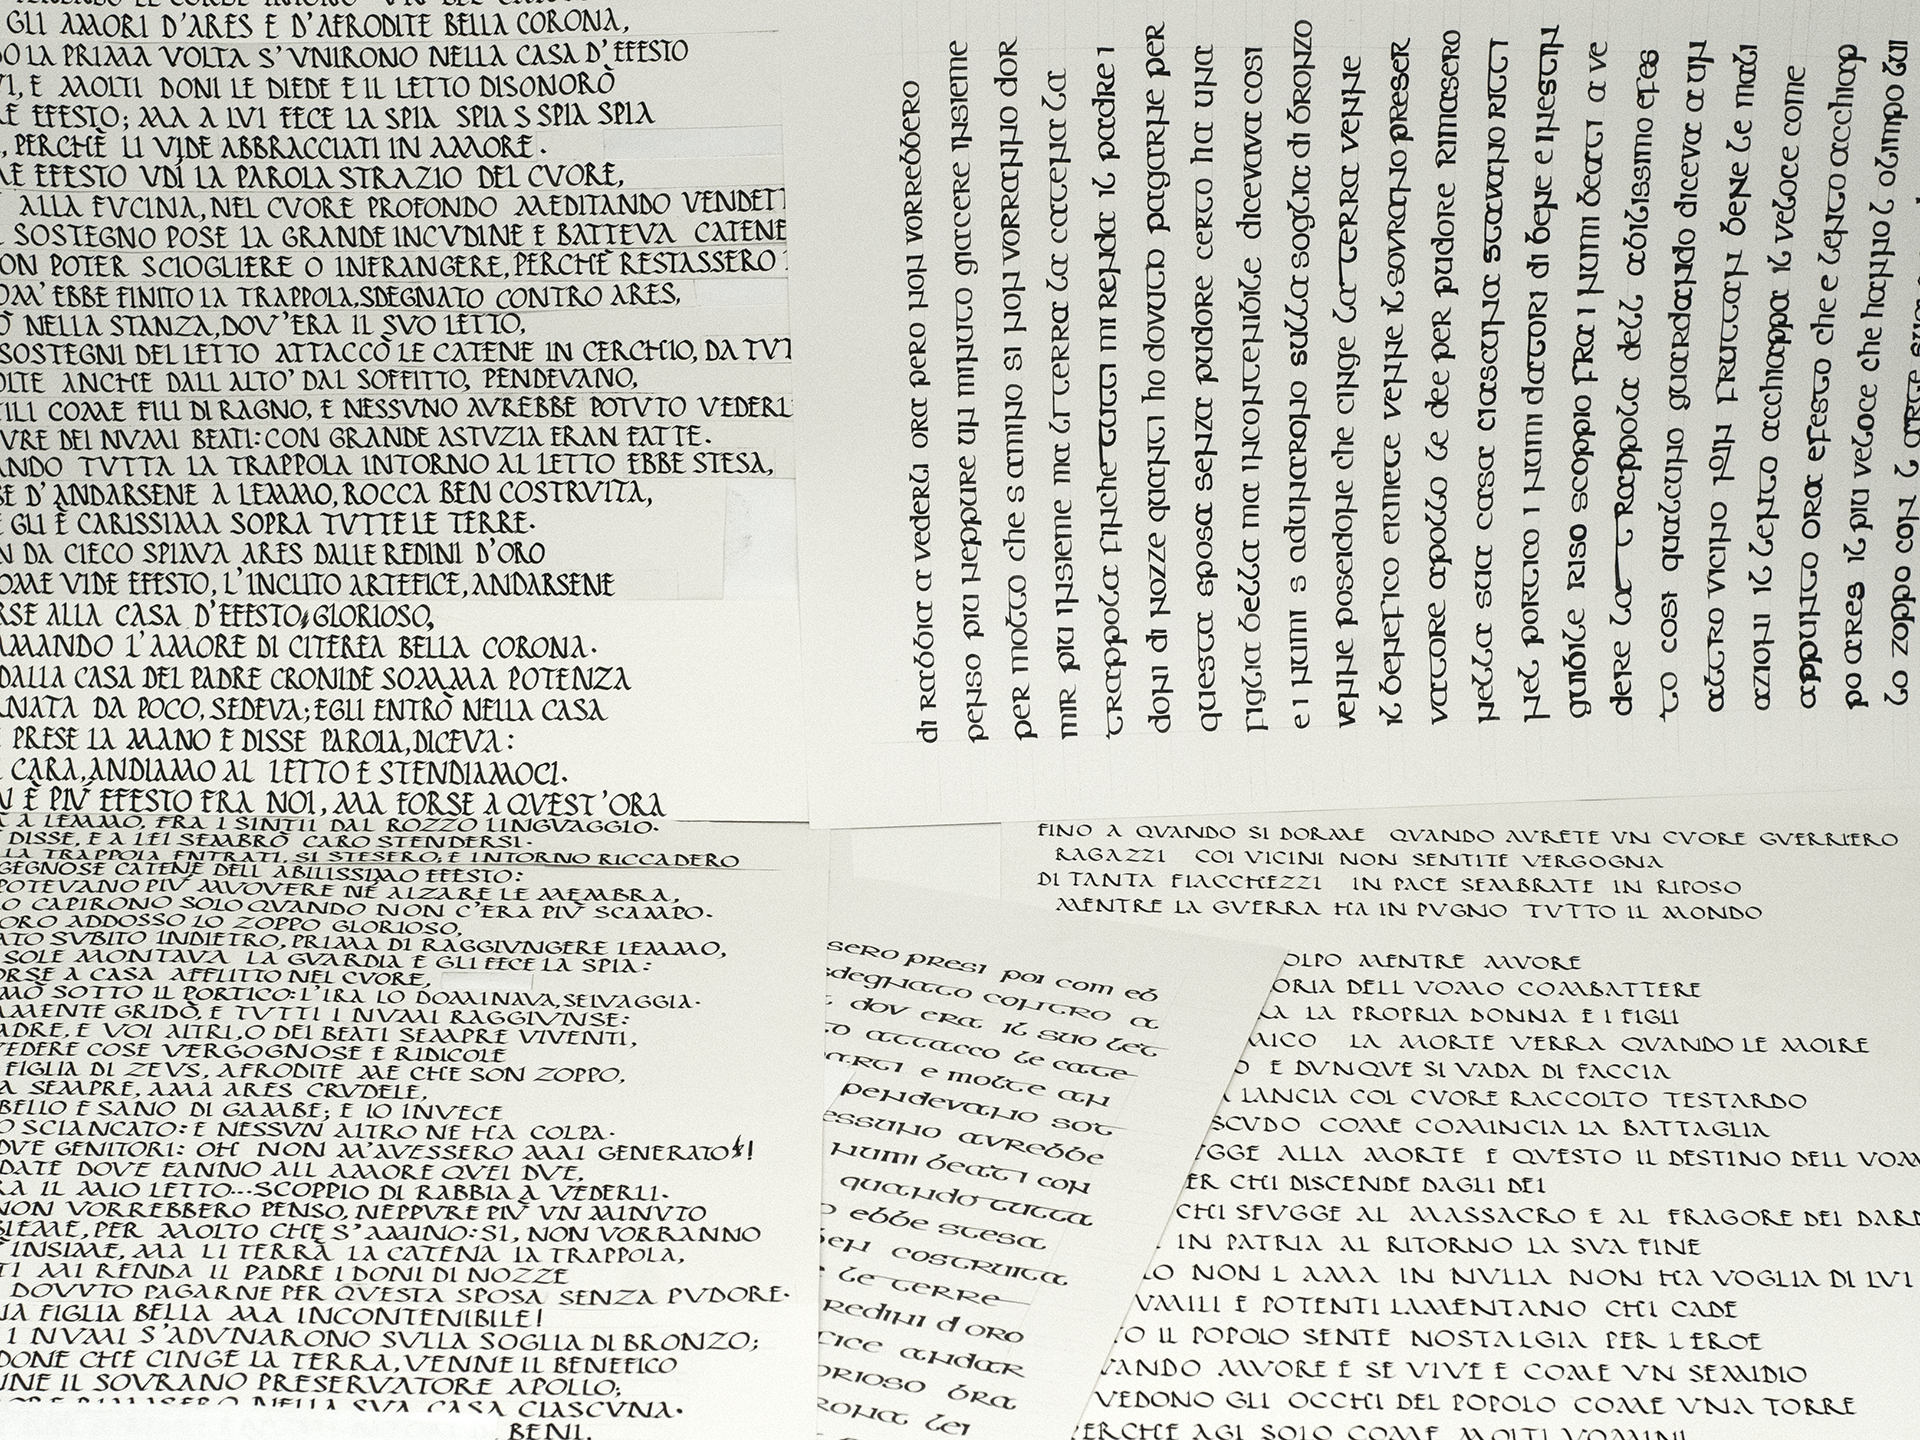 GLI AMORI D'ARES E D'AFRODITE BELLA CORONA,
LA PRIMA VOLTA S'VNIRONO NELLA CASA D'EFESTO
E MOLTI DONI LE DIEDE E IL LETTO DISONORÒ
EFESTO; MA A LVI FECE LA SPIA SPIA S SPIA SPIA
PERCHÈ LI VIDE ABBRACCIATI IN AMORE.
EFESTO VDÍ LA PAROLA STRAZIO DEL CVORE,
ALLA FVCINA, NEL CVORE PROFONDO MEDITANDO VENDETT
SOSTEGNO POSE LA GRANDE INCVDINE E BATTEVA CATENE
ON POTER SCIOGLIERE O INFRANGERE, PERCHÈ RESTASSERO
OM'EBBE FINITO LA TRAPPOLA, SDEGNATO CONTRO ARES,
Ò NELLA STANZA, DOV'ERA IL SVO LETTO,
SOSTEGNI DEL LETTO ATTACCÒ LE CATENE IN CERCHIO, DA TVT
OLTE ANCHE DALL ALTO' DAL SOFFITTO, PENDEVANO,
TILI COME FILI DI RAGNO, E NESSVNO AVREBBE POTVTO VEDERL
VRE DEI NVMI BEATI: CON GRANDE ASTVZIA ERAN FATTE.
ANDO TVTTA LA TRAPPOLA INTORNO AL LETTO EBBE STESA,
SE D'ANDARSENE A LEMMO, ROCCA BEN COSTRVITA,
E GLI È CARISSIMA SOPRA TVTTE LE TERRE.
N DA CIECO SPIAVA ARES DALLE REDINI D'ORO
OME VIDE EFESTO, L'INCLITO ARTEFICE, ANDARSENE
RSE ALLA CASA D'EFESTO, GLORIOSO,
AMANDO L'AMORE DI CITEREA BELLA CORONA.
DALLA CASA DEL PADRE CRONIDE SOMMA POTENZA
RNATA DA POCO, SEDEVA; EGLI ENTRÒ NELLA CASA
E PRESE LA MANO E DISSE PAROLA, DICEVA:
CARA, ANDIAMO AL LETTO E STENDIAMOCI.
N È PIV' EFESTO FRA NOI, MA FORSE A QVEST'ORA
A LEMMO, FRA I SINTII DAL ROZZO LINGVAGGIO.
DISSE, E A LEI SEMBRÒ CARO STENDERSI.
LA TRAPPOLA ENTRATI, SI STESERO; E INTORNO RICCADERO
GEGNOSE CATENE DELL ABILISSIMO EFESTO:
POTEVANO PIV' MVOVERE NÈ ALZARE LE MEMBRA,
O CAPIRONO SOLO QVANDO NON C'ERA PIV' SCAMPO.
ORO ADDOSSO LO ZOPPO GLORIOSO,
ATO SVBITO INDIETRO, PRIMA DI RAGGIVNGERE LEMMO,
SOLE MONTAVA LA GVARDIA E GLI FECE LA SPIA:
ORSE A CASA AFFLITTO NEL CVORE,
MÒ SOTTO IL PORTICO: L'IRA LO DOMINAVA, SELVAGGIA.
AMENTE GRIDÒ, E TVTTI I NVMI RAGGIVNSE:
ADRE, E VOI ALTRI, O DEI BEATI SEMPRE VIVENTI,
VEDERE COSE VERGOGNOSE E RIDICOLE
FIGLIA DI ZEVS, AFRODITE ME CHE SON ZOPPO,
A SEMPRE, AMA ARES CRVDELE,
BELLO E SANO DI GAMBE; E IO INVECE
O SCIANCATO: E NESSVN ALTRO NE HA COLPA.
DVE GENITORI: OH NON M'AVESSERO MAI GENERATO!
DATE DOVE FANNO ALL AMORE QVEI DVE,
RA IL MIO LETTO...SCOPPIO DI RABBIA A VEDERLI.
NON VORREBBERO PENSO, NEPPVRE PIV' VN MINVTO
SIEME, PER MOLTO CHE S'AMINO: SI, NON VORRANNO
INSIME, MA LI TERRÀ LA CATENA LA TRAPPOLA,
TI MI RENDA IL PADRE I DONI DI NOZZE
DOVVTO PAGARNE PER QVESTA SPOSA SENZA PVDORE.
VA FIGLIA BELLA MA INCONTENIBILE!
I NVMI S'ADVNARONO SVLLA SOGLIA DI BRONZO;
DONE CHE CINGE LA TERRA, VENNE IL BENEFICO
NNE IL SOVRANO PRESERVATORE APOLLO;
RIMASERO NELLA SVA CASA CIASCVNA.
BENI,
di rabbia a vederli ora pero non vorrebbero
penso piu neppure un minuto giacere insieme
per molto che s amino si non vorranno dor
mir piu insieme ma li terra la catena la
trappola finche tutti mi renda il padre i
doni di nozze quanti ho dovuto pagarne per
questa sposa senza pudore certo ha una
figlia bella ma incontenibile diceva cosi
e i numi s adunarono sulla soglia di bronzo
venne poseidone che cinge la terra venne
il benefico ermete venne il sovrano preser
vatore apollo le dee per pudore rimasero
nella sua casa ciascuna stavano ritti
nel portico i numi datori di bene e inestin
guibile riso scoppio fra i numi beati a ve
dere la t Rappola dell abilissimo efes
to cosi qualcuno guardando diceva a un
altro vicino non fruttan bene le mali
azioni il lento acchiappa il veloce come
appunto ora efesto che e lento acchiap
po ares il piu veloce che hanno l olimpo lui
lo zoppo con l arte
FINO A QVANDO SI DORME QVANDO AVRETE VN CVORE GVERRIERO
RAGAZZI COI VICINI NON SENTITE VERGOGNA
DI TANTA FIACCHEZZI IN PACE SEMBRATE IN RIPOSO
MENTRE LA GVERRA HA IN PVGNO TVTTO IL MONDO
OLPO MENTRE MVORE
ORIA DELL VOMO COMBATTERE
RA LA PROPRIA DONNA E I FIGLI
MICO LA MORTE VERRA QVANDO LE MOIRE
O E DVNQVE SI VADA DI FACCIA
A LANCIA COL CVORE RACCOLTO TESTARDO
SCVDO COME COMINCIA LA BATTAGLIA
VGGE ALLA MORTE E QVESTO IL DESTINO DELL VOM
ER CHI DISCENDE DAGLI DEI
CHI SFVGGE AL MASSACRO E AL FRAGORE DEI DARD
IN PATRIA AL RITORNO LA SVA FINE
O NON L AMA IN NVLLA NON HA VOGLIA DI LVI
VMILI E POTENTI LAMENTANO CHI CADE
O IL POPOLO SENTE NOSTALGIA PER L EROE
VANDO MVORE E SE VIVE E COME VN SEMIDIO
VEDONO GLI OCCHI DEL POPOLO COME VNA TORRE
ERCHE AGI SOLO COME MOLTI VOMINI
sero presi poi com eb
sdegnato contro a
dov era il suo let
to attacco le cate
arti e molte an
pendevano sot
essuno avrebbe
numi beati con
quando tutta
o ebbe stesa
ben costruita
le terre
redini d oro
fice andar
orioso bra
rona lei